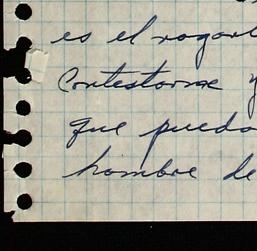 es el rogarl
Contestarme y
que pueda
hombre de